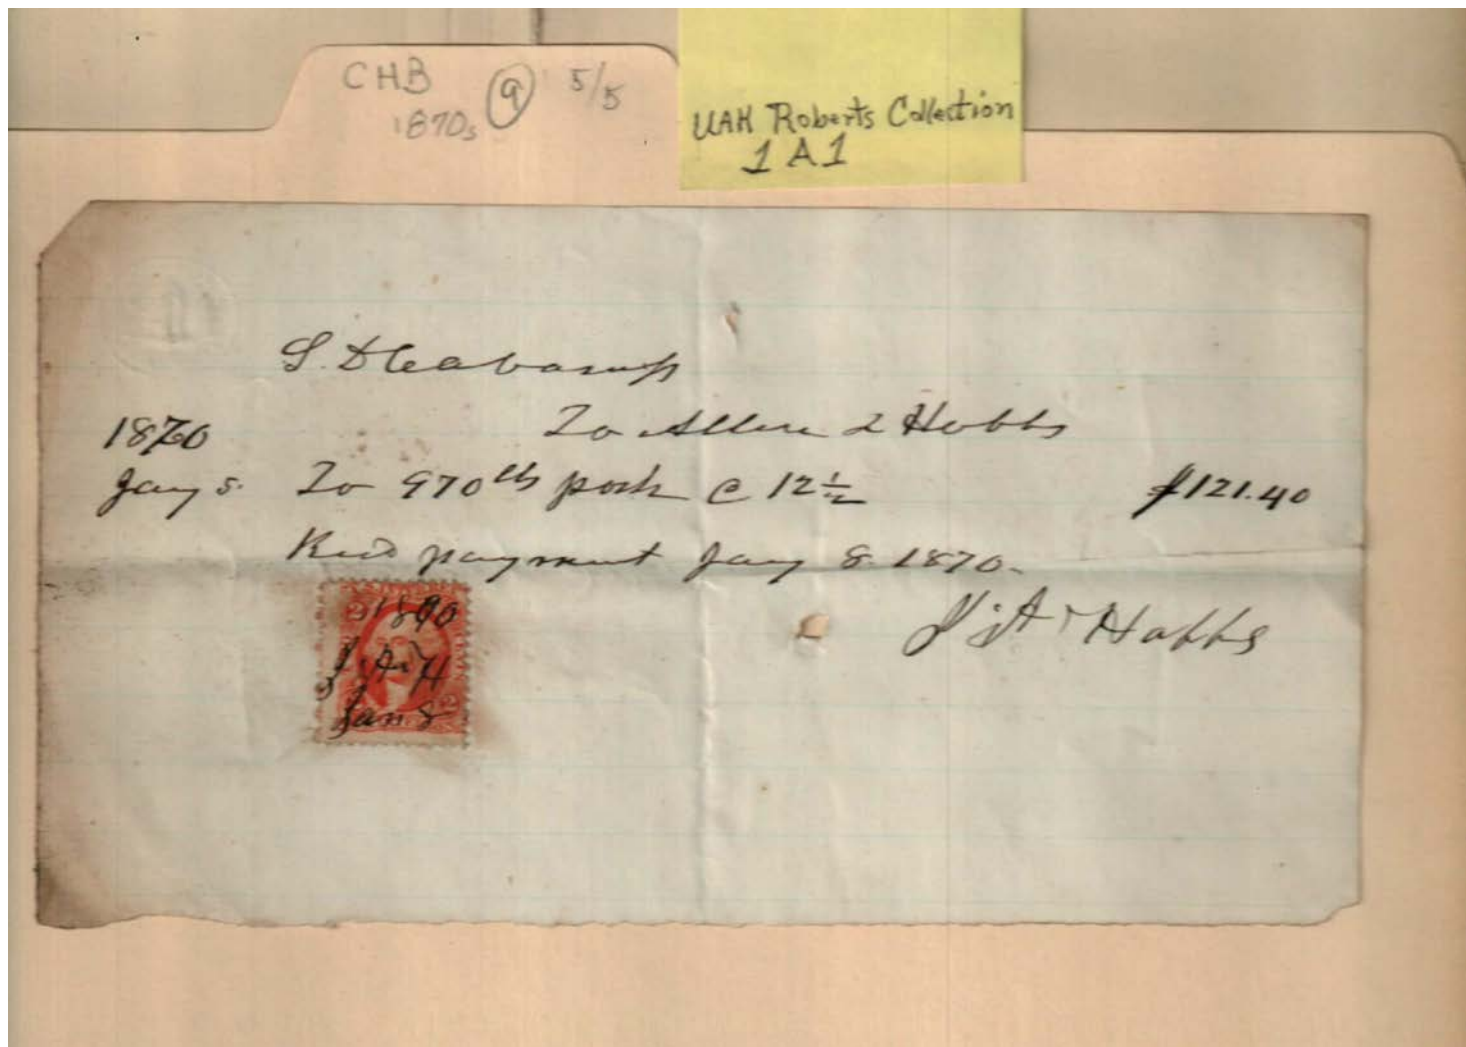 CHB 9 5/5
1870s
UAH Roberts Collection
1 A 1
S. D Cabaniss
1870 To Allen & Hobbs
Jany 5. To 970 lbs pork @ 12 1/2 $121.40
Recd payment Jany 8. 1870.
Hobbs
2 1870
H
Jan. 8
2